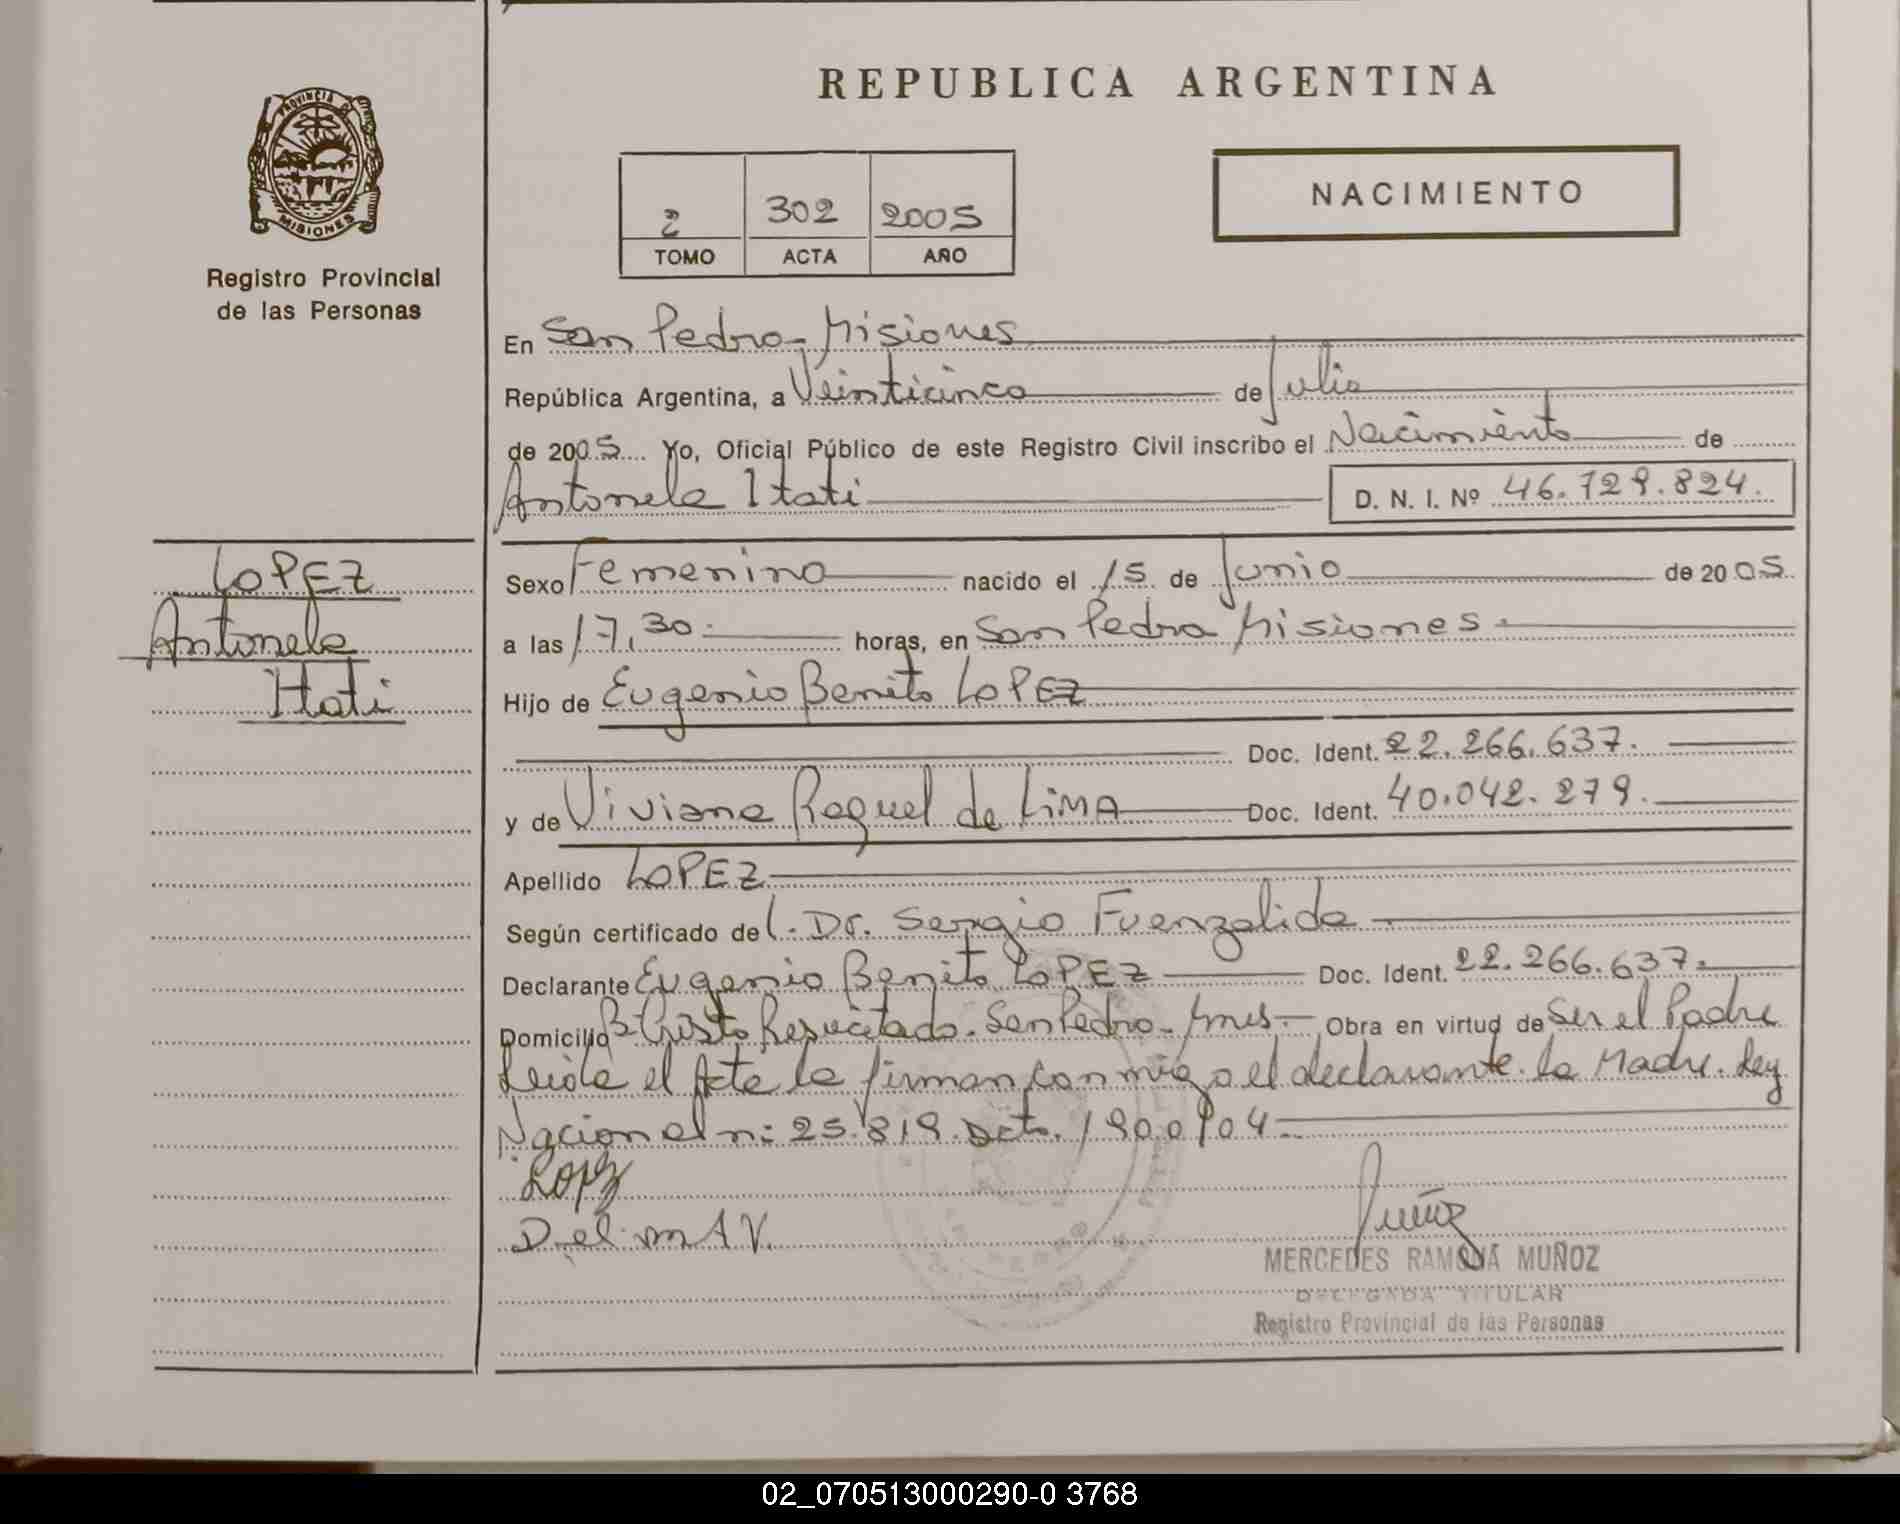 REPUBLICA ARGENTINA
PROVINCIA DE
MISIONES
Registro Provincial
de las Personas
2 302 2005
TOMO ACTA AÑO
NACIMIENTO
En San Pedro - Misiones
República Argentina, a Veinticinco de Julio
de 2005 Yo, Oficial Público de este Registro Civil inscribo el Nacimiento de
Antonela Itati D. N. I. Nº 46.729.824.
LOPEZ
Antonela
Itati
Sexo Femenino nacido el 15 de Junio de 2005
a las 17,30 horas, en San Pedro Misiones
Hijo de Eugenio Benito LOPEZ
Doc. Ident. 22.266.637.
y de Viviana Raquel de LIMA Doc. Ident. 40.042.279.
Apellido LOPEZ
Según certificado del Dr. Sergio Fuenzalida
Declarante Eugenio Benito LOPEZ Doc. Ident. 22.266.637.
Domicilio Bº Cristo Resucitado. San Pedro - Mnes - Obra en virtud de Ser el Padre
Leida el Acta la firman conmigo el declarante. la Madre. Ley
Nacional n: 25.819. Dcto. 1900/04
Lopez
D el m A V.
MERCEDES RAMONA MUÑOZ
DELEGADA TITULAR
Registro Provincial de las Personas
02_070513000290-0 3768